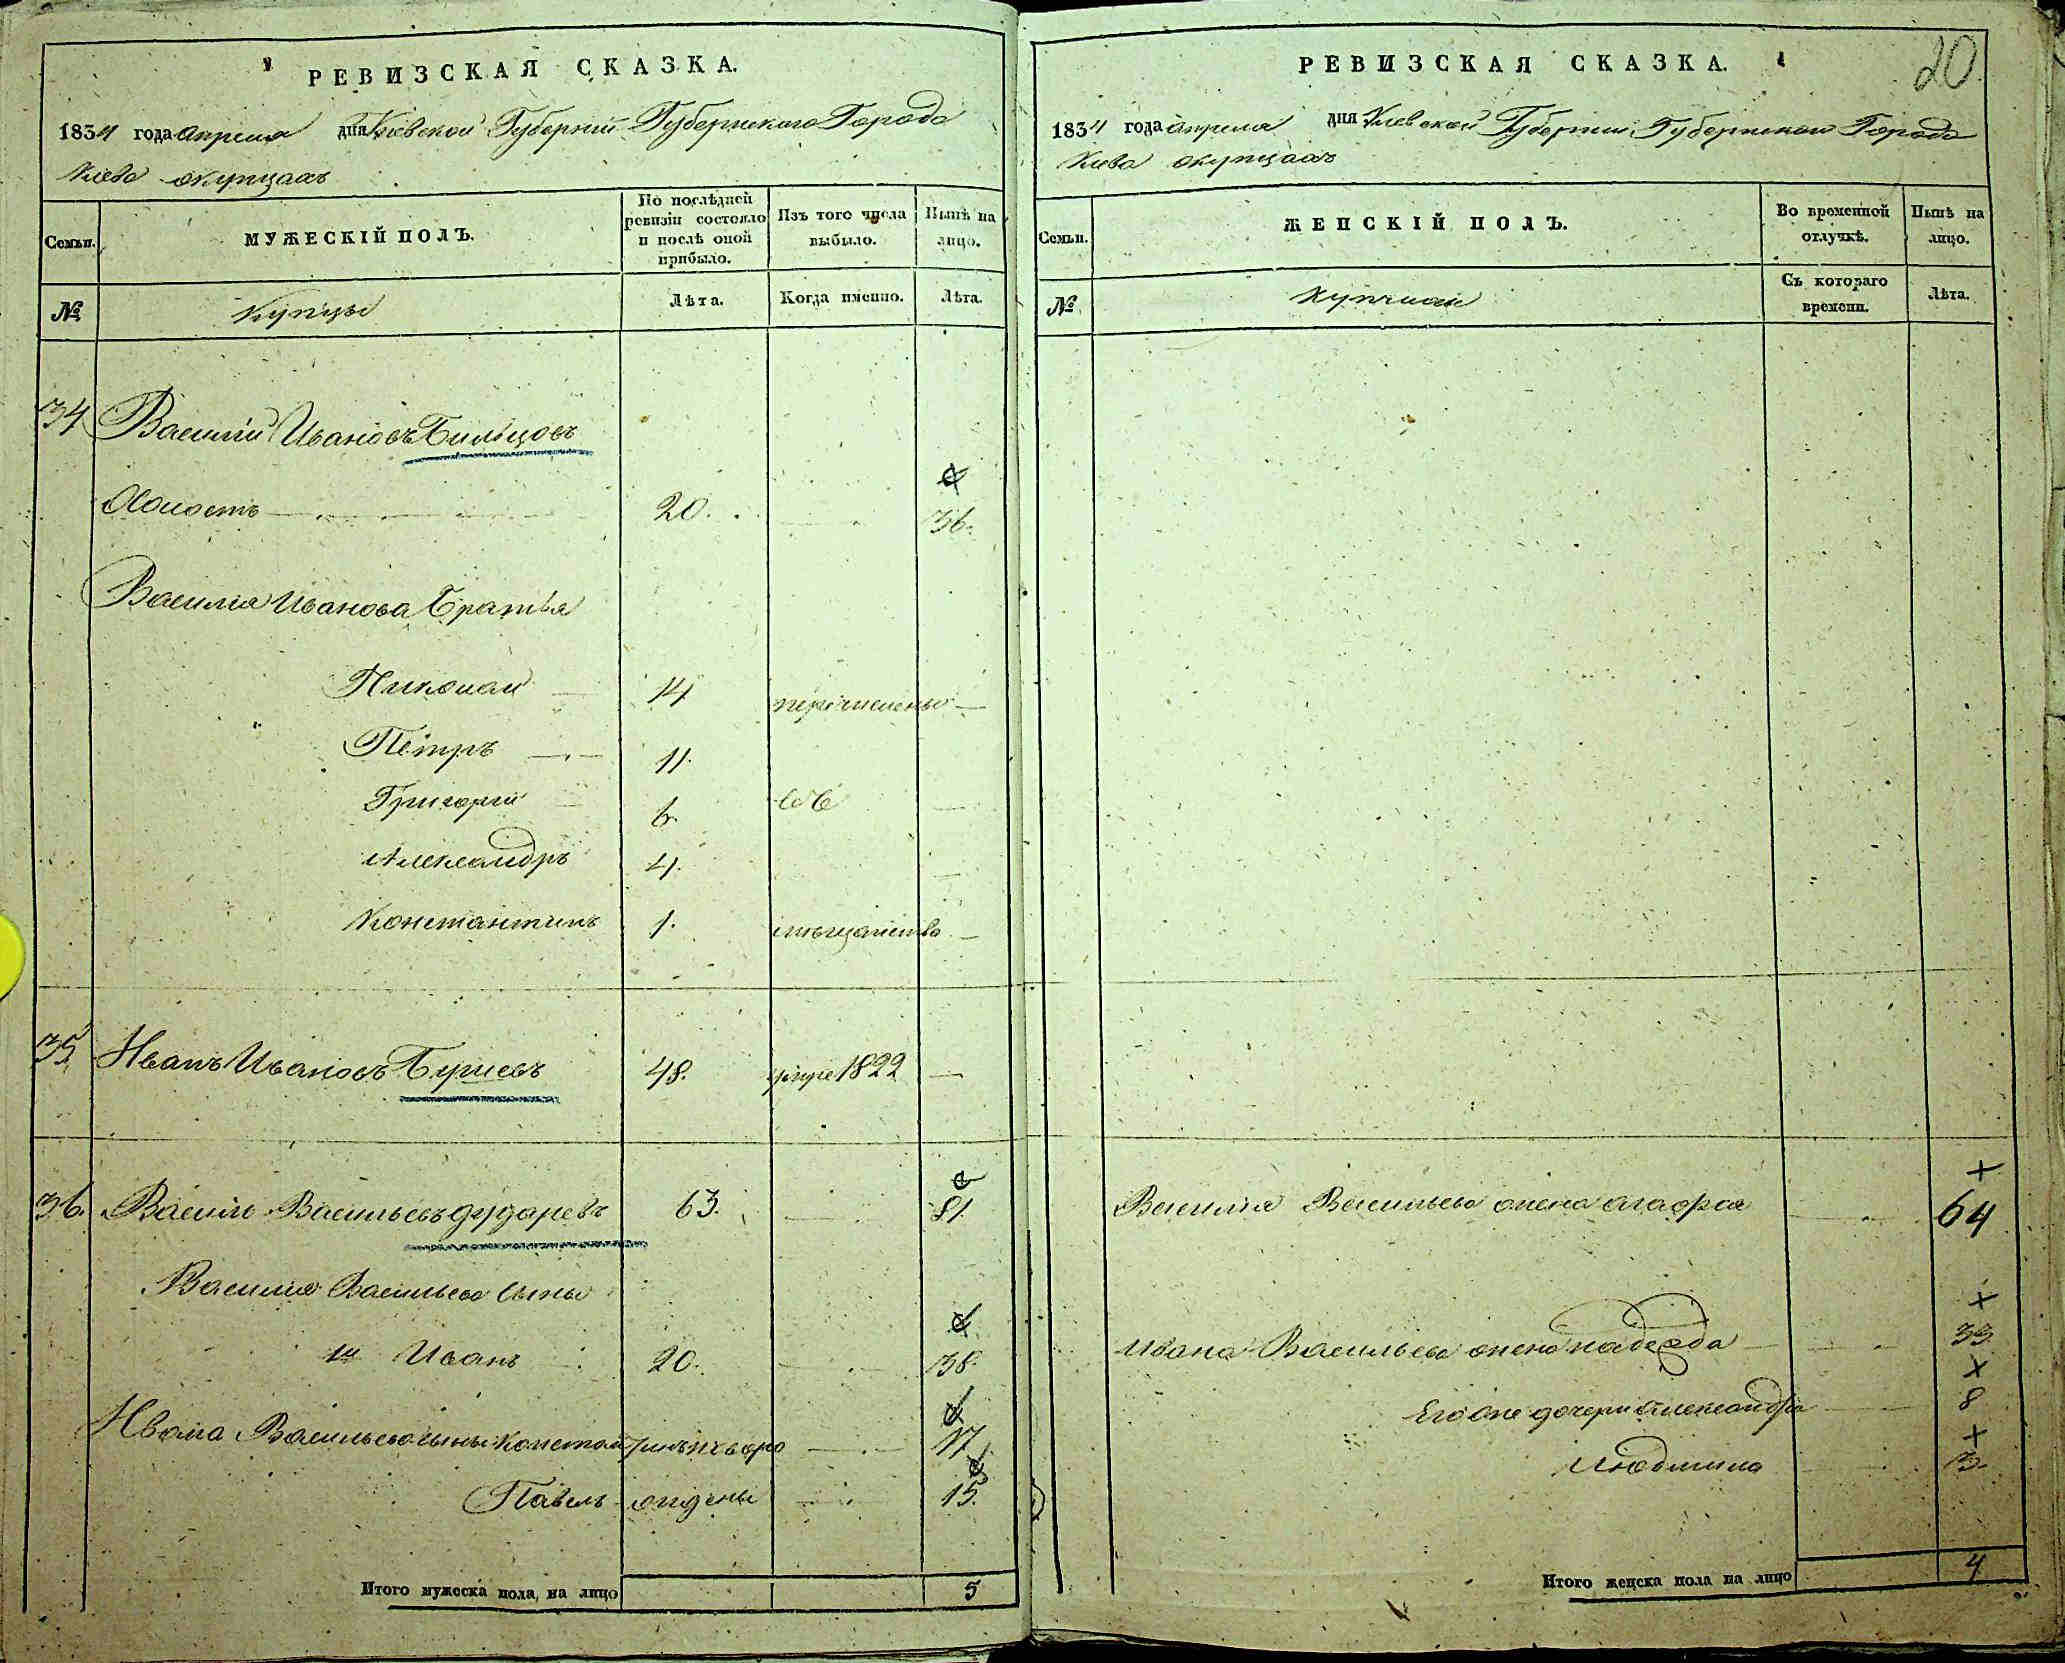 РЕВИЗСКАЯ СКАЗКА.
1834 года апреля дня Киевской Губернии Губернского Города
Киева окупцахъ
Семьи.
МУЖЕСКІЙ ПОЛЪ.
По послѣдней ревизіи состояло и послѣ оной прибыло.
Изъ того числа выбыло.
Нынѣ на лицо.
№
Купцы
Лѣта.
Когда именно.
Лѣта.
34 Василий Ивановъ Бильцовъ
Холостъ 20. 36.
Василия Иванова Братья
Николай 14 перечислены
Петръ 11.
Григорий 6. въ
Александръ 4.
Константинъ 1. мещанство
35 Иванъ Ивановъ 48. умре 1822
36. Василий Васильевъ Дударевъ 63. 81.
Василия Васильева сыны
1й Иванъ 20. 38.
Ивана Васильева сыны Константинъ новоро 17
Павелъ ождены 15.
Итого мужеска пола, на лицо 5
20
РЕВИЗСКАЯ СКАЗКА.
1834 года апреля дня Киевской Губернии Губернскаго Города
Киева окупцахъ
Семьи.
ЖЕНСКІЙ ПОЛЪ.
Во временной отлучкѣ.
Нынѣ на лицо.
№
Съ котораго времени.
Лѣта.
Василия Васильева жена Агафья 64
Ивана Васильева жена Надежда 33
Его же дочери Александра 8
Людмила 3.
Итого женска пола на лицо 4